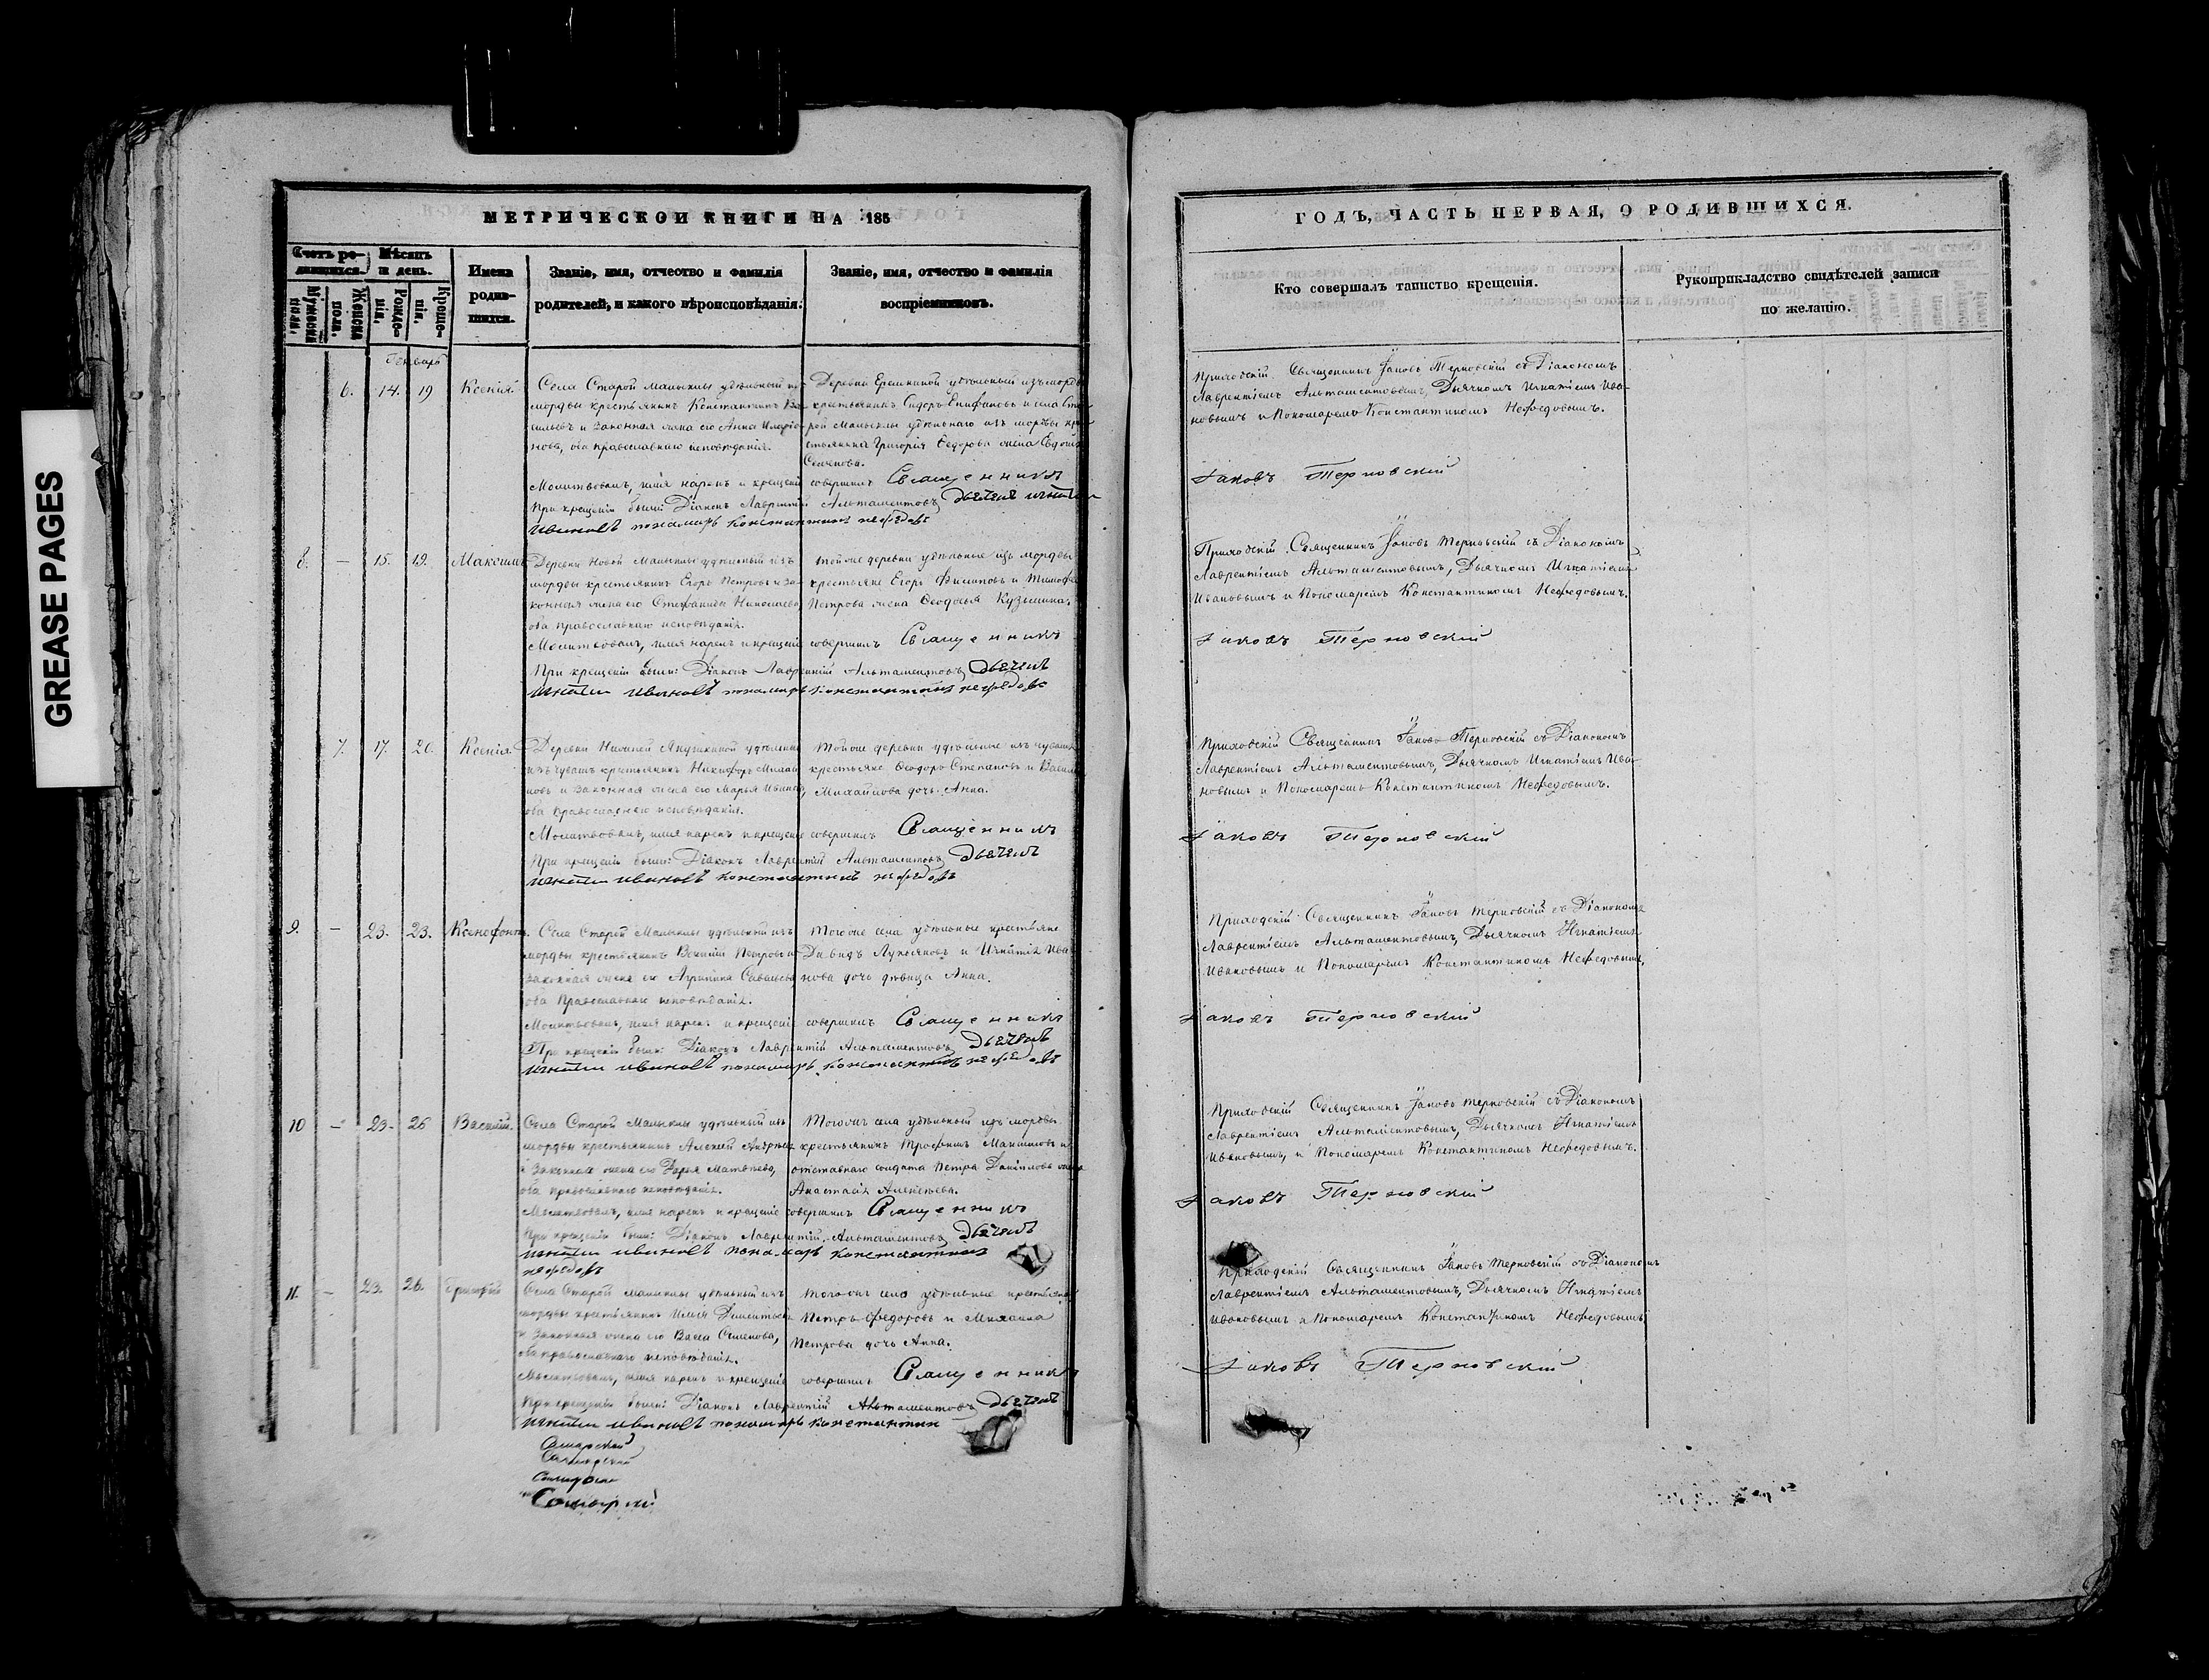 GREASE PAGES
МЕТРИЧЕСКОЙ КНИГИ НА 185
Счетъ ро-
дившихся.
Мѣсяцъ
и день.
Мужеска
пола.
Женска
пола.
Рожде-
нія.
Креще-
нія.
Имена
родив-
шихся.
Званіе, имя, отчество и фамилія
родителей, и какого вѣроисповѣданія.
Званіе, имя, отчество и фамилія
воспріемниковъ.
Январь
6. 14. 19 Ксенія.
Села Старой Малыклы удѣльный изъ
мордвы крестьянинъ Константинъ Ва-
сильевъ и законная жена его Анна Иларіо-
нова, оба православнаго исповѣданія.
Деревни Еремкиной удѣльный изъ мордвы
крестьянинъ Сидоръ Епифановъ и села Ста-
рой Малыклы удѣльнаго изъ мордвы кре-
стьянина Григорія Федорова жена Евдокія
Семенова.
Молитвовалъ, имя нарекъ и крещеніе совершилъ Священникъ
При крещеніи были: Діаконъ Лаврентій Альтаментовъ, дьячекъ игнати
ивановъ понамарь константинъ нефедовъ
8. — 15. 19. Максимъ
Деревни Новой Малыклы удѣльный изъ
мордвы крестьянинъ Егоръ Петровъ и за-
конная жена его Стефанида Николаева,
оба православнаго исповѣданія.
Тойже деревни удѣльные изъ мордвы
крестьяне Егоръ Филиповъ и Тимофея
Петрова жена Ѳеодосья Кузьмина.
Молитвовалъ, имя нарекъ и крещеніе совершилъ Священникъ
При крещеніи были: Діаконъ Лаврентій Альтаментовъ, дьячекъ
игнати ивановъ понамарь константинъ нефедовъ
7. 17. 20. Ксенія.
Деревни Нижней Якушкиной удѣльный
изъ чувашъ крестьянинъ Никифоръ
новъ и законная жена его Марья Иванова,
оба православнаго исповѣданія.
Тойже деревни удѣльные изъ чувашъ
крестьяне Ѳеодоръ Степановъ и Василья
Михайлова дочь Анна.
Молитвовалъ, имя нарекъ и крещеніе совершилъ Священникъ
При крещеніи были: Діаконъ Лаврентій Альтаментовъ, дьячекъ
игнати ивановъ константинъ нефедовъ
9. — 23. 23. Ксенофонтъ.
Села Старой Малыклы удѣльный изъ
мордвы крестьянинъ Василій Петровъ и
законная жена его Агрипина Савельева
оба Православнаго исповѣданія.
Тогоже села удѣльные крестьяне
Давидъ Лукьяновъ и Игнатія Ива-
нова дочь дѣвица Анна.
Молитвовалъ, имя нарекъ и крещеніе совершилъ Священникъ
При крещеніи были: Діаконъ Лаврентій Альтаментовъ, дьячекъ
игнати ивановъ понамарь константинъ нефедовъ
10 — 23. 26 Василій.
Села Старой Малыклы удѣльный изъ
мордвы крестьянинъ Алексій Андреевъ
и законная жена его Дарья Матвѣева,
оба православнаго исповѣданія.
Тогоже села удѣльный изъ мордвы
крестьянинъ Трофимъ Максимовъ и
отставнаго солдата Петра Данилова жена
Анастасія Алексѣева.
Молитвовалъ, имя нарекъ и крещеніе совершилъ Священникъ
При крещеніи были: Діаконъ Лаврентій Альтаментовъ, дьячекъ
игнати ивановъ понамарь константинъ
нефедовъ
11. — 23. 26. Григорій
Села Старой Малыклы удѣльный изъ
мордвы крестьянинъ Илія Дементьевъ
и законная жена его Васса Семенова,
оба православнаго исповѣданія.
Тогоже села удѣльные крестьяне
Петръ Федоровъ и Михаила
Петрова дочь Анна.
Молитвовалъ, имя нарекъ и крещеніе совершилъ Священникъ
При крещеніи были: Діаконъ Лаврентій Альтаментовъ, дьячекъ
игнати ивановъ понамарь константин
Самарской
ГОДЪ, ЧАСТЬ ПЕРВАЯ, О РОДИВШИХСЯ.
Кто совершалъ таинство крещенія.
Рукоприкладство свидѣтелей записи
по желанію.
Приходскій Священникъ Іаковъ Терновскій съ Діакономъ
Лаврентіемъ Альтаментовымъ, Дьячкомъ Игнатіемъ Ива-
новымъ и Пономаремъ Константиномъ Нефедовымъ.
Іаковъ Терновскій
Приходскій Священникъ Іаковъ Терновскій съ Діакономъ
Лаврентіемъ Альтаментовымъ, Дьячкомъ Игнатіемъ
Ивановымъ и Пономаремъ Константиномъ Нефедовымъ.
Іаковъ Терновскій
Приходскій Священникъ Іаковъ Терновскій съ Діакономъ
Лаврентіемъ Альтаментовымъ, Дьячкомъ Игнатіемъ Ива-
новымъ и Пономаремъ Константиномъ Нефедовымъ.
Іаковъ Терновскій
Приходскій Священникъ Іаковъ Терновскій съ Діакономъ
Лаврентіемъ Альтаментовымъ, Дьячкомъ Игнатіемъ
Ивановымъ и Пономаремъ Константиномъ Нефедовымъ,
Іаковъ Терновскій
Приходскій Священникъ Іаковъ Терновскій съ Діакономъ
Лаврентіемъ Альтаментовымъ, Дьячкомъ Игнатіемъ
Ивановымъ, и Пономаремъ Константиномъ Нефедовымъ.
Іаковъ Терновскій
Приходскій Священникъ Іаковъ Терновскій съ Діакономъ
Лаврентіемъ Альтаментовымъ, Дьячкомъ Игнатіемъ
Ивановымъ и Пономаремъ Константиномъ Нефедовымъ
Іаковъ Терновскій